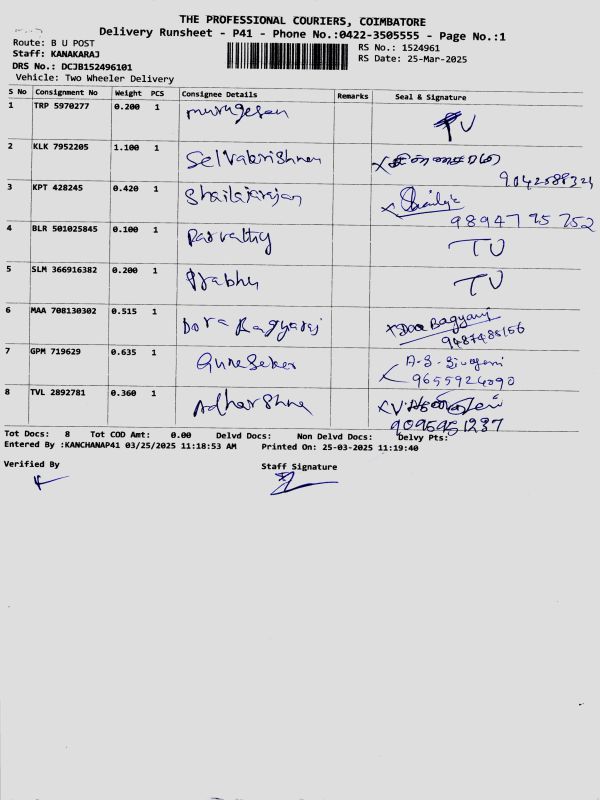 THE PROFESSIONAL COURIERS, COIMBATORE
Delivery Runsheet - P41 - Phone No.:0422-3505555 - Page No.:1
Route: B U POST
RS No.: 1524961
Staff: KANAKARAJ
RS Date: 25-Mar-2025
DRS No.: DCJB152496101
Vehicle: Two Wheeler Delivery
S No Consignment No Weight PCS Consignee Details Remarks Seal & Signature
1 TRP 5970277 0.200 1 murugesan TU
2 KLK 7952205 1.100 1 Selvakrishnan
3 KPT 428245 0.420 1 Shailajarajan Shailaja
98947 75 752
4 BLR 501025845 0.100 1 Parvathy TU
5 SLM 366916382 0.200 1 Prabhu TU
6 MAA 708130302 0.515 1 Dora Bagyaraj x Dora Bagyaraj
9487488156
7 GPM 719629 0.635 1 Gunasekar A.S. Sivagami
9655924090
8 TVL 2892781 0.360 1 Adharshna
9095951237
Tot Docs: 8 Tot COD Amt: 0.00 Delvd Docs: Non Delvd Docs: Delvy Pts:
Entered By :KANCHANAP41 03/25/2025 11:18:53 AM Printed On: 25-03-2025 11:19:40
Verified By Staff Signature